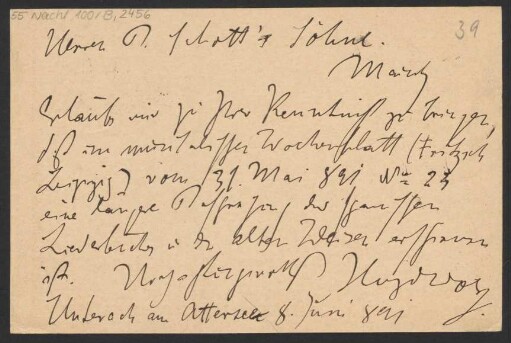 55 Nachl 100/B, 2456
39
Herren B. Schott's Söhne.
Mainz
Erlaube mir zu Ihrer Kenntniß zu bringen,
daß im musikalischen Wochenblatt (Fritzsch
Leipzig) vom 21. Mai 891 Nro 23
eine lange Besprechung des spanischen
Liederbuches u. der alten Weisen erschienen
ist. Hochachtungsvoll Hugo Wolf
Unterach am Attersee 8. Juni 891